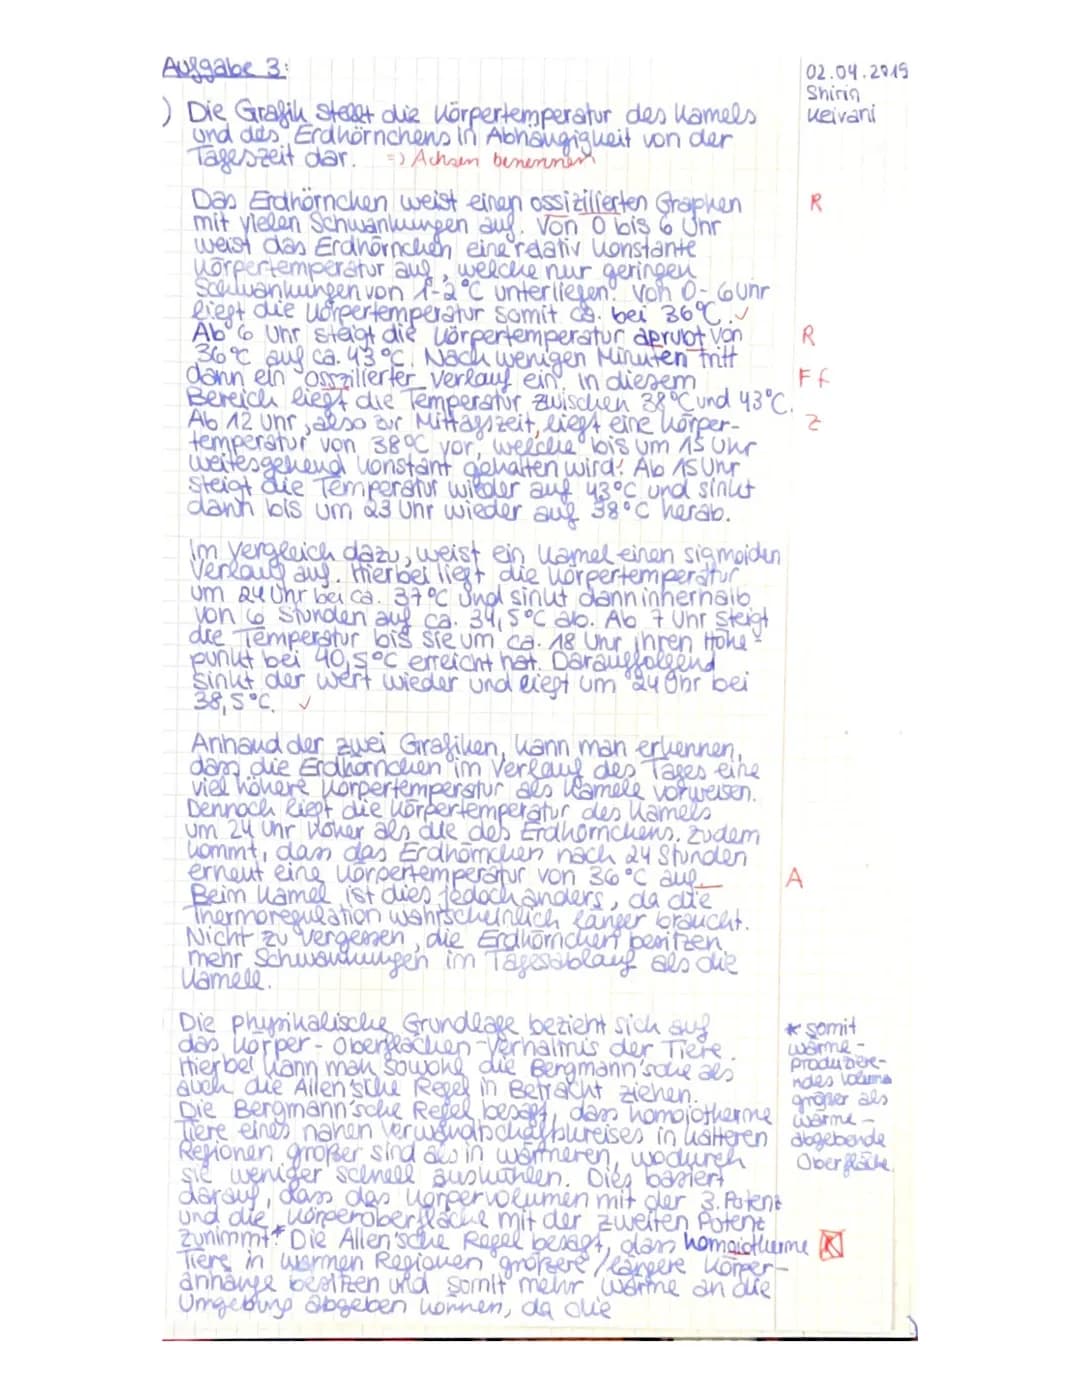 Aufgabe 3:
02.04.2019
Shirin
Keivani
) Die Grafik stellt die Körpertemperatur des Kamels
und des Erdhörnchens in Abhängigkeit von der
Tageszeit dar. => Achsen benennen
Das Erdhörnchen weist einen ossizillierten Graphen R
mit vielen Schwankungen auf. Von 0 bis 6 Uhr
weist das Erdhörnchen eine relativ konstante
Körpertemperatur auf, welche nur geringen
Schwankungen von 1-2°C unterliegen. Von 0-6 Uhr
liegt die Körpertemperatur somit ca. bei 36°C. ✓
Ab 6 Uhr steigt die Körpertemperatur aprupt von R
36°C auf ca. 43°C. Nach wenigen Minuten tritt
dann ein osszillierter Verlauf ein, in diesem Ff
Bereich liegt die Temperatur zwischen 38°C und 43°C.
Ab 12 Uhr, also zur Mittagszeit, liegt eine Körper- Z
temperatur von 38°C vor, welche bis um 15 Uhr
weitesgehend konstant gehalten wird. Ab 15 Uhr
steigt die Temperatur wieder auf 43°C und sinkt
dann bis um 23 Uhr wieder auf 38°C herab.
Im Vergleich dazu, weist ein Kamel einen sigmoiden
Verlauf auf. Hierbei liegt die Körpertemperatur
um 24 Uhr bei ca. 37°C und sinkt dann innerhalb
von 6 Stunden auf ca. 34,5°C ab. Ab 7 Uhr steigt
die Temperatur bis sie um ca. 18 Uhr ihren Höhe-
punkt bei 40,5°C erreicht hat. Darauffolgend
sinkt der Wert wieder und liegt um 24 Uhr bei
38,5°C. ✓
Anhand der zwei Grafiken, kann man erkennen,
dass die Erdhörnchen im Verlauf des Tages eine
viel höhere Körpertemperatur als Kamele vorweisen.
Dennoch liegt die Körpertemperatur des Kamels
um 24 Uhr höher als die des Erdhörnchens. Zudem
kommt, dass das Erdhörnchen nach 24 Stunden
erneut eine Körpertemperatur von 36°C auf A
Beim Kamel ist dies jedoch anders, da die
Thermoregulation wahrscheinlich länger braucht.
Nicht zu vergessen, die Erdhörnchen besitzen
mehr Schwankungen im Tagesablauf als die
Kamele.
Die physikalische Grundlage bezieht sich auf
das Körper-Oberflächen-Verhältnis der Tiere.
Hierbei kann man sowohl die Bergmann'sche als
auch die Allen'sche Regel in Betracht ziehen.
Die Bergmann'sche Regel besagt, dass homoiotherme
Tiere eines nahen Verwandtschaftskreises in kälteren
Regionen größer sind als in wärmeren, wodurch
sie weniger schnell auskühlen. Dies basiert
darauf, dass das Körpervolumen mit der 3. Potenz
und die Körperoberfläche mit der zweiten Potenz
zunimmt.* Die Allen'sche Regel besagt, dass homoiotherme K
Tiere in warmen Regionen größere/längere Körper-
anhänge besitzen und somit mehr Wärme an die
Umgebung abgeben können, da die
* somit
wärme-
produziere-
ndes Volumen
größer als
wärme-
abgebende
Oberfläche.